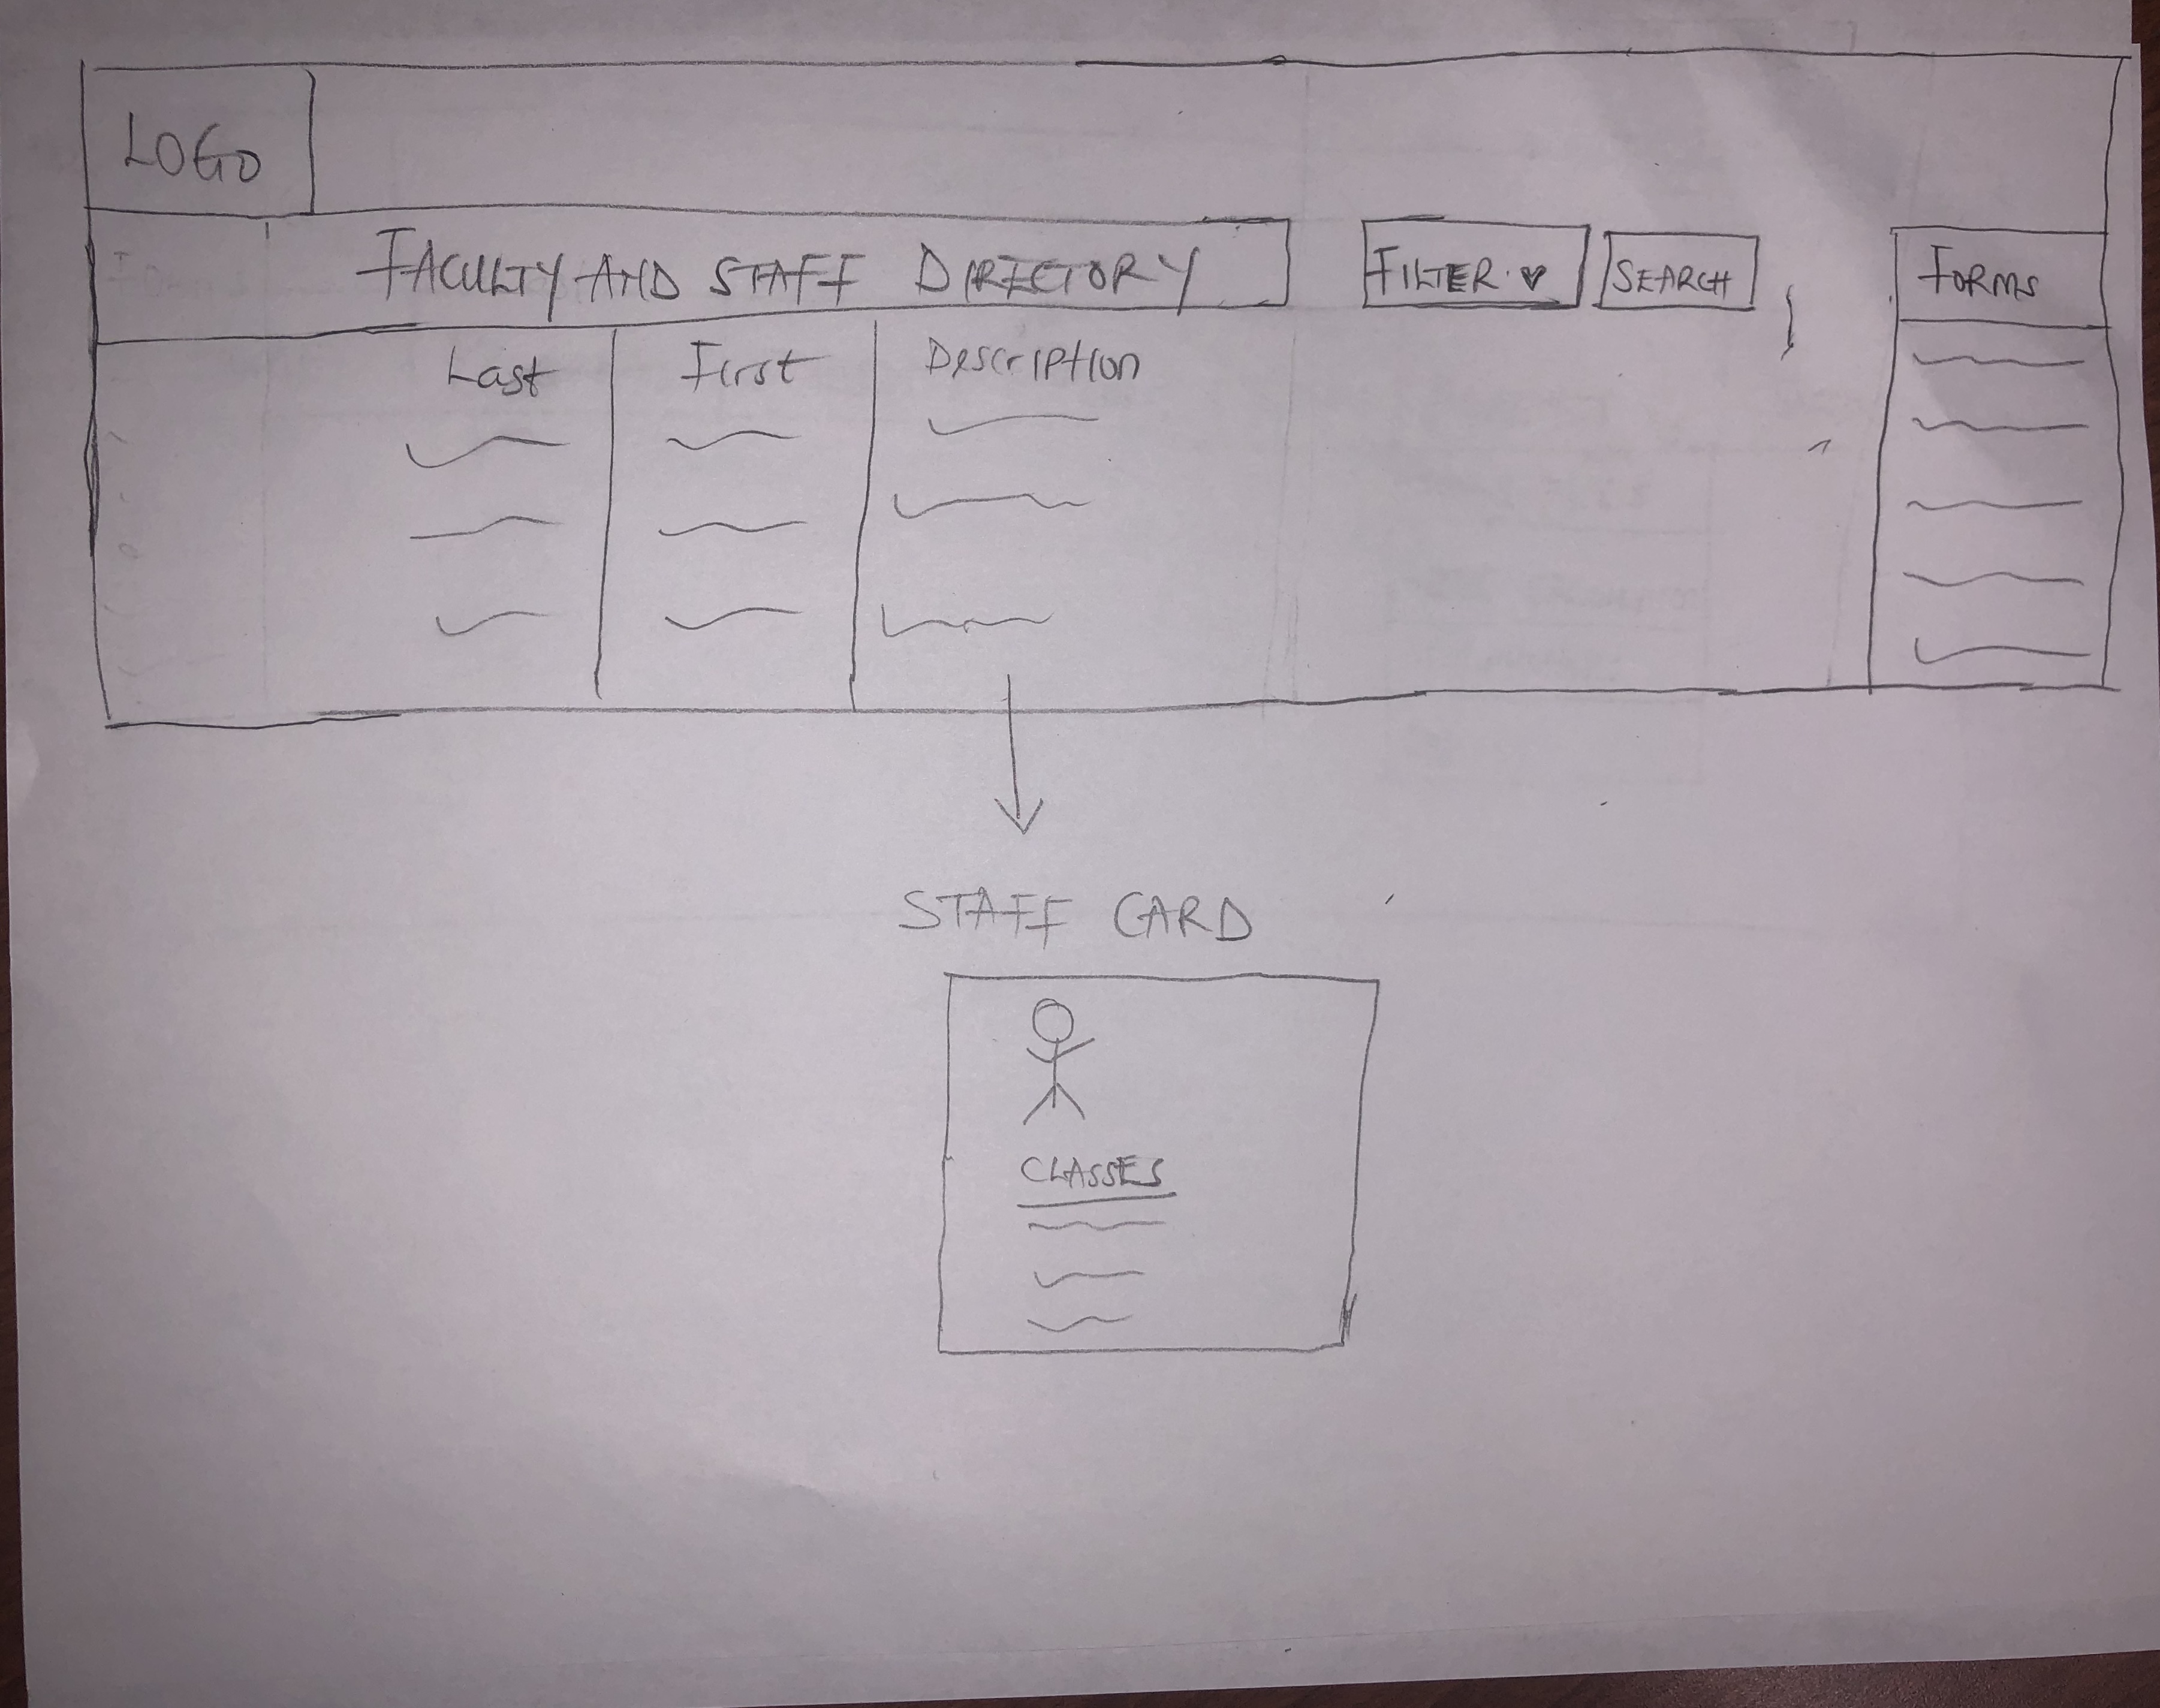 LOGO
FACULTY AND STAFF DIRECTORY
FILTER
SEARCH
FORMS
Last First Description
STAFF CARD
CLASSES